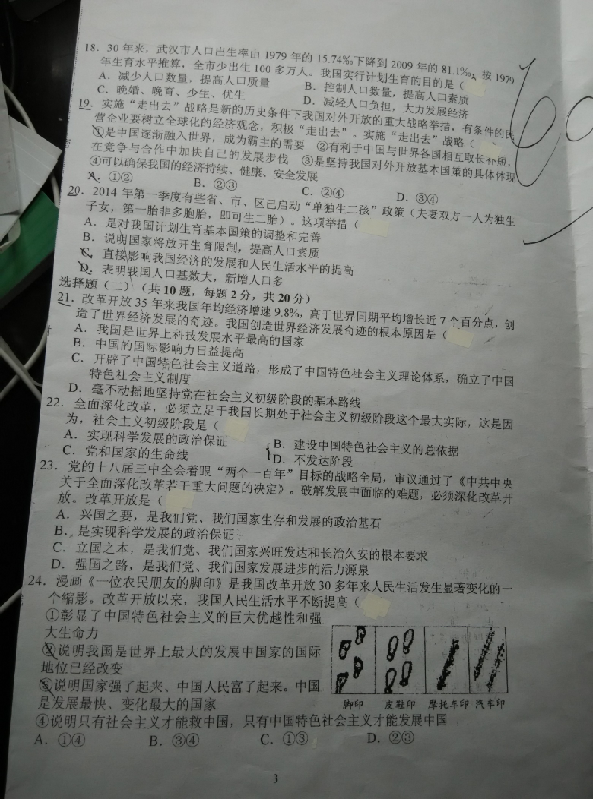 18. 30年来，武汉市人口出生率由1979年的15.74‰下降到2009年的81.1‰，按1979
年生育水平推算，全市少出生100多万人。我国实行计划生育的目的是（
A．减少人口数量，提高人口质量 B．控制人口数量，提高人口素质
C．晚婚、晚育、少生、优生 D．减轻人口负担，大力发展经济
19. 实施“走出去”战略是新的历史条件下我国对外开放的重大战略举措，有条件的民
营企业要树立全球化的经济观念，积极“走出去”。实施“走出去”战略（
①是中国逐渐融入世界，成为霸主的需要 ②有利于中国与世界各国相互取长补短，
在竞争与合作中加快自己的发展步伐 ③是坚持我国对外开放基本国策的具体体现
④可以确保我国的经济持续、健康、安全发展
A．①② B．②③ C．②④ D．③④
20. 2014年第一季度有些省、市、区已启动“单独生二孩”政策（夫妻双方一人为独生
子女，第一胎非多胞胎，即可生二胎）。这项举措（
A．是对我国计划生育基本国策的调整和完善
B．说明国家将放开生育限制，提高人口素质
C．直接影响我国经济的发展和人民生活水平的提高
D．表明我国人口基数大，新增人口多
选择题（二）（共10题，每题2分，共20分）
21. 改革开放35年来我国年均经济增速9.8%，高于世界同期平均增长近7个百分点，创
造了世界经济发展的奇迹。我国创造世界经济发展奇迹的根本原因是（
A．我国是世界上科技发展水平最高的国家
B．中国的国际影响力日益提高
C．开辟了中国特色社会主义道路，形成了中国特色社会主义理论体系，确立了中国
特色社会主义制度
D．毫不动摇地坚持党在社会主义初级阶段的基本路线
22. 全面深化改革，必须立足于我国长期处于社会主义初级阶段这个最大实际，这是因
为，社会主义初级阶段是（
A．实现科学发展的政治保证 B．建设中国特色社会主义的总依据
C．党和国家的生命线 D．不发达阶段
23. 党的十八届三中全会着眼“两个一百年”目标的战略全局，审议通过了《中共中央
关于全面深化改革若干重大问题的决定》。破解发展中面临的难题，必须深化改革开
放。改革开放是（
A．兴国之要，是我们党、我们国家生存和发展的政治基石
B．是实现科学发展的政治保证
C．立国之本，是我们党、我们国家兴旺发达和长治久安的根本要求
D．强国之路，是我们党、我们国家发展进步的活力源泉
24. 漫画《一位农民朋友的脚印》是我国改革开放30多年来人民生活发生显著变化的一
个缩影。改革开放以来，我国人民生活水平不断提高（
①彰显了中国特色社会主义的巨大优越性和强
大生命力
②说明我国是世界上最大的发展中国家的国际
地位已经改变
③说明国家强了起来，中国人民富了起来。中国
是发展最快、变化最大的国家
脚印 皮鞋印 摩托车印 汽车印
④说明只有社会主义才能救中国，只有中国特色社会主义才能发展中国
A．①④ B．③④ C．①③ D．②③
3